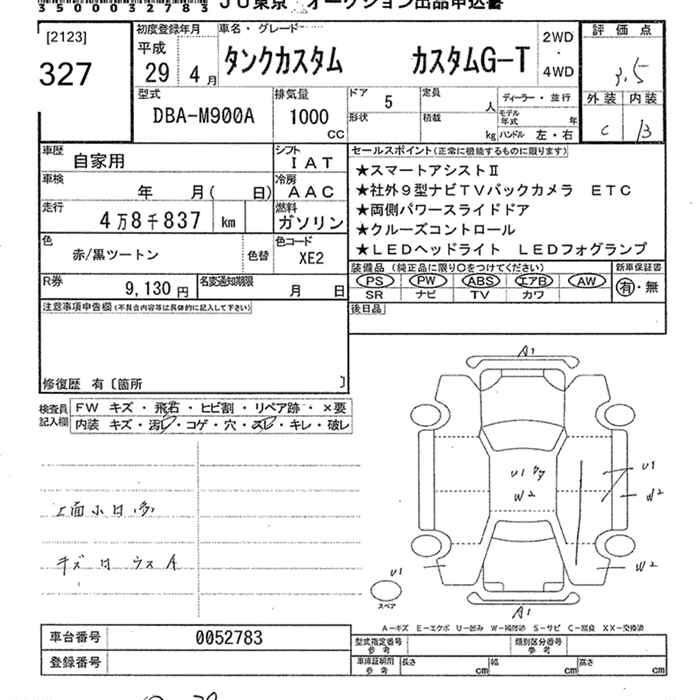 35000032783 JU東京 オークション出品申込書
[2123]
327
初度登録年月 車名・グレード 2WD ・ 4WD 評価点
平成 29年 4月 タンクカスタム カスタムG-T 3.5
外装 内装
C B
型式 DBA-M900A 排気量 1000 CC ドア 5 定員 人 ディーラー・並行
形状 積載 kg モデル年式 年 ハンドル 左・右
車歴 自家用 シフト IAT
車検 年 月( 日) 冷房 AAC
走行 4万8千837 km 燃料 ガソリン
色 赤/黒ツートン 色替 色コード XE2
R券 9,130円 名変通知期限 月 日
セールスポイント(正常に機能するものに限ります)
★スマートアシストⅡ
★社外9型ナビTVバックカメラ ETC
★両側パワースライドドア
★クルーズコントロール
★LEDヘッドライト LEDフォグランプ
装備品(純正品に限り○をつけてください) 新車保証書
PS PW ABS エアB AW 有・無
SR ナビ TV カワ
後日品
注意事項申告欄(不具合内容等は具体的に記入して下さい)
修復歴 有〔箇所 〕
検査員記入欄 FW キズ・飛石・ヒビ割・リペア跡・×要
内装 キズ・汚レ・コゲ・穴・スレ・キレ・破レ
上面小凹多
キズ凹ウスA
A1
U1
W2
U1
W2
W2
U1
A1
スペア
A－キズ E－エクボ U－凹み W－補修跡 S－サビ C－腐食 XX－交換済
車台番号 0052783
登録番号
型式指定番号 参考 類別区分番号 参考
車庫証明用 参考 長さ cm 幅 cm 高さ cm